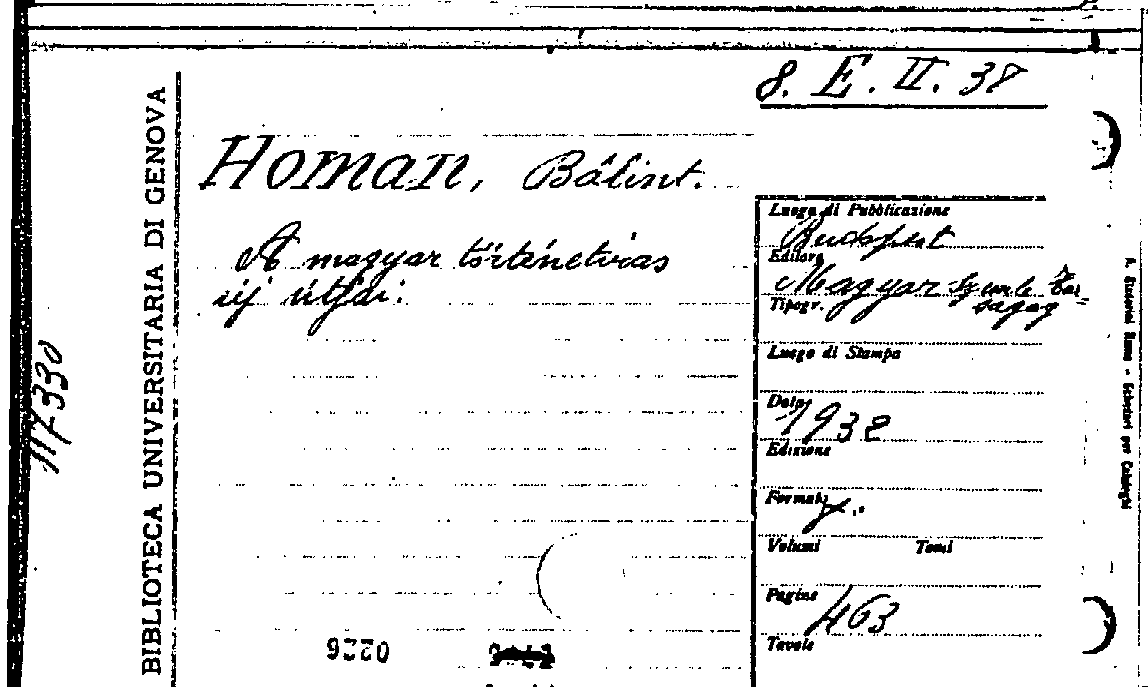 8. E. II. 38
Homan, Bálint.
A magyar történetirás
új útjai.
BIBLIOTECA UNIVERSITARIA DI GENOVA
117330
Luogo di Pubblicazione
Budapest
Editore
Magyar Szemle Tár
saság
Tipogr.
Luogo di Stampa
Data
1932
Edizione
Formato
Volumi Tomi
Pagine
463
Tavole
0226